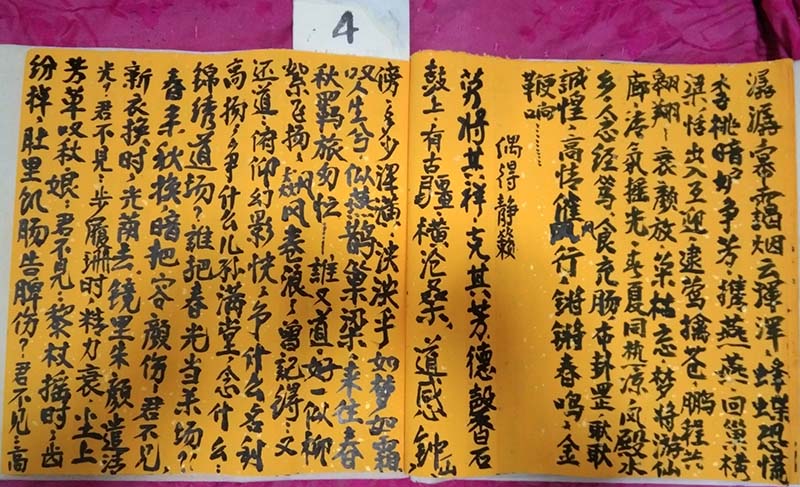 4
烟云渾渾蜂蝶恐慵
李桃暗妒争芳搓燕燕回巢横
梁恬出入互迎速莺擒苍鹏程共
翱翔衰颜放菜枯忘梦將游仙
廊清氣摇光春夏同执凉风殿水
乡念经笃食充肠布卦罡耿耿
誠惶高情催风行鏘鏘春鸣金
鞭响……
偶得静籁
芳将其祥克其芳德馨石
鼓上有古疆横沧桑道感钟仙
傍多少浑满泱泱乎如梦如霜
叹人生兮似燕鹊巢梁来住春
秋羁旅匆忙谁又道好一似柳
絮飞扬飙风卷浪曾记得又
还道俯仰幻影恍争什么名利
高拗争什么儿孙满堂念什么
锦绣道场?谁把春光当荣场?
春来秋挨暗把容颜伤君不见
新衣换时光荫去镜里朱颜遣活
光?君不见步履珊时精力衰尘上
芳草叹秋娘君不见黎杖摇时齿
纷掉肚里饥肠告脾伤?君不见高